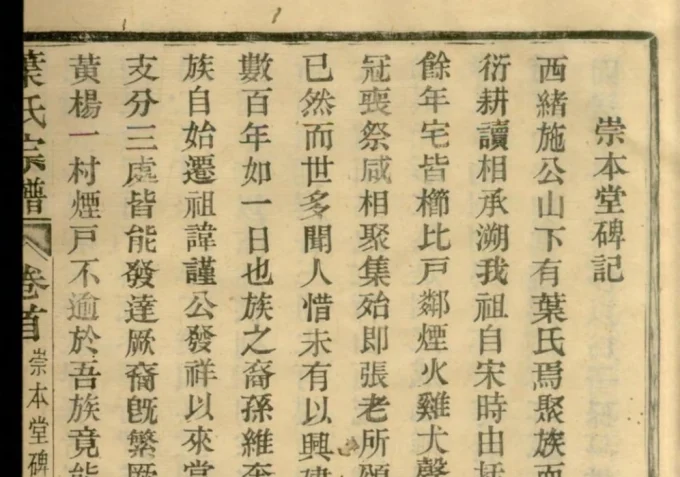 崇本堂碑記
西緒施公山下有葉氏焉聚族而
衍耕讀相承溯我祖自宋時由括
餘年宅皆櫛比戶鄰煙火雞犬聲
冠喪祭咸相聚集殆即張老所頌
已然而世多聞人惜未有以興建
數百年如一日也族之裔孫維奎
族自始遷祖諱謹公發祥以來當
支分三處皆能發達厥裔旣繁
黃楊一村煙戶不逾於吾族竟能
葉氏宗譜 卷首 崇本堂碑